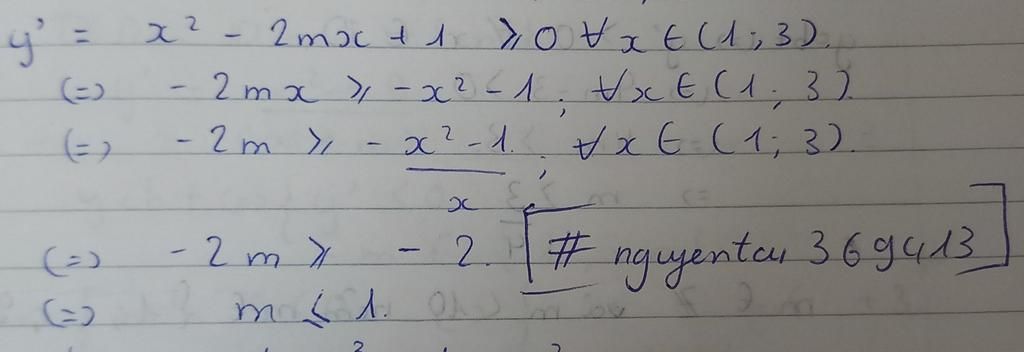 y' = x² - 2mx + 1 ≥ 0 ∀ x ∈ (1; 3).
(=) - 2mx ≥ -x² - 1; ∀x ∈ (1; 3).
(=) - 2m ≥ (-x² - 1)/x; ∀ x ∈ (1; 3).
(=) - 2m ≥ - 2. [# nguyentai 369413]
(=) m ≤ 1.